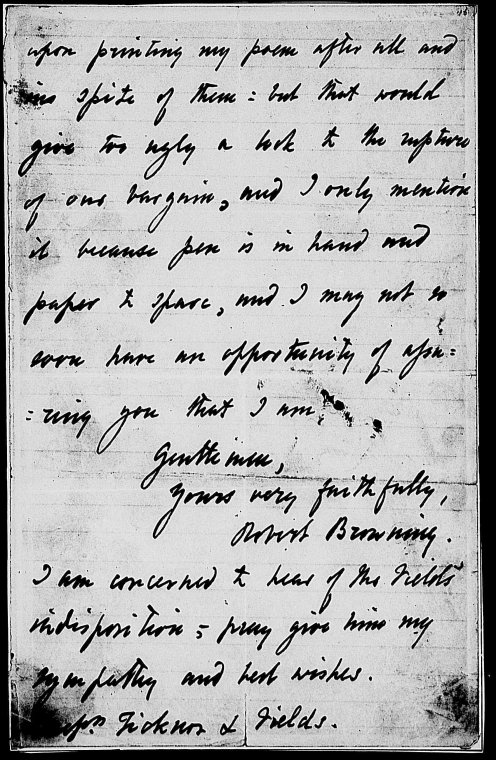 upon printing my poem after all and
in spite of them = but that would
give too ugly a look to the rupture
of our bargain, and I only mention
it because pen is in hand and
paper to spare, and I may not so
soon have an opportunity of assu=
=ring you that I am,
Gentlemen,
Yours very faithfully,
Robert Browning.
I am concerned to hear of Mr Fields'
indisposition = pray give him my
sympathy and best wishes.
Messrs Ticknor & Fields.